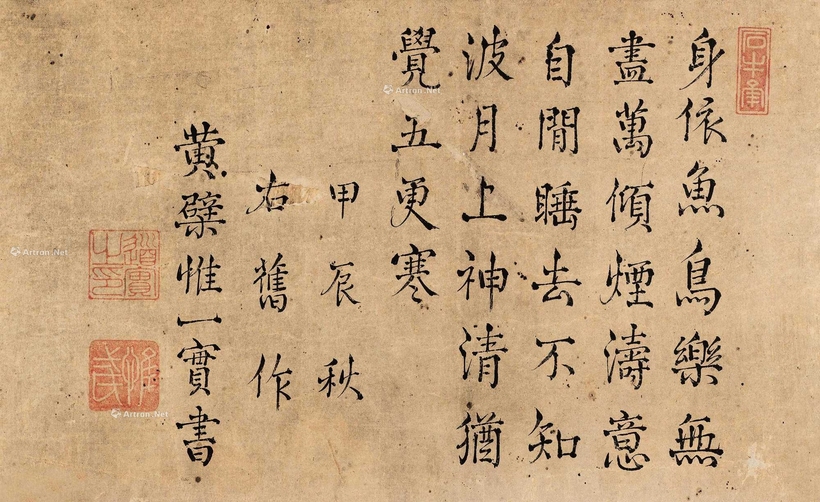 身依魚鳥樂無
盡萬傾煙濤意
自閒睡去不知
波月上神清猶
覺五更寒
甲辰秋
右舊作
黄檗惟一實書
道實之印
Artron.Net
Artron.Net
Artron.Net